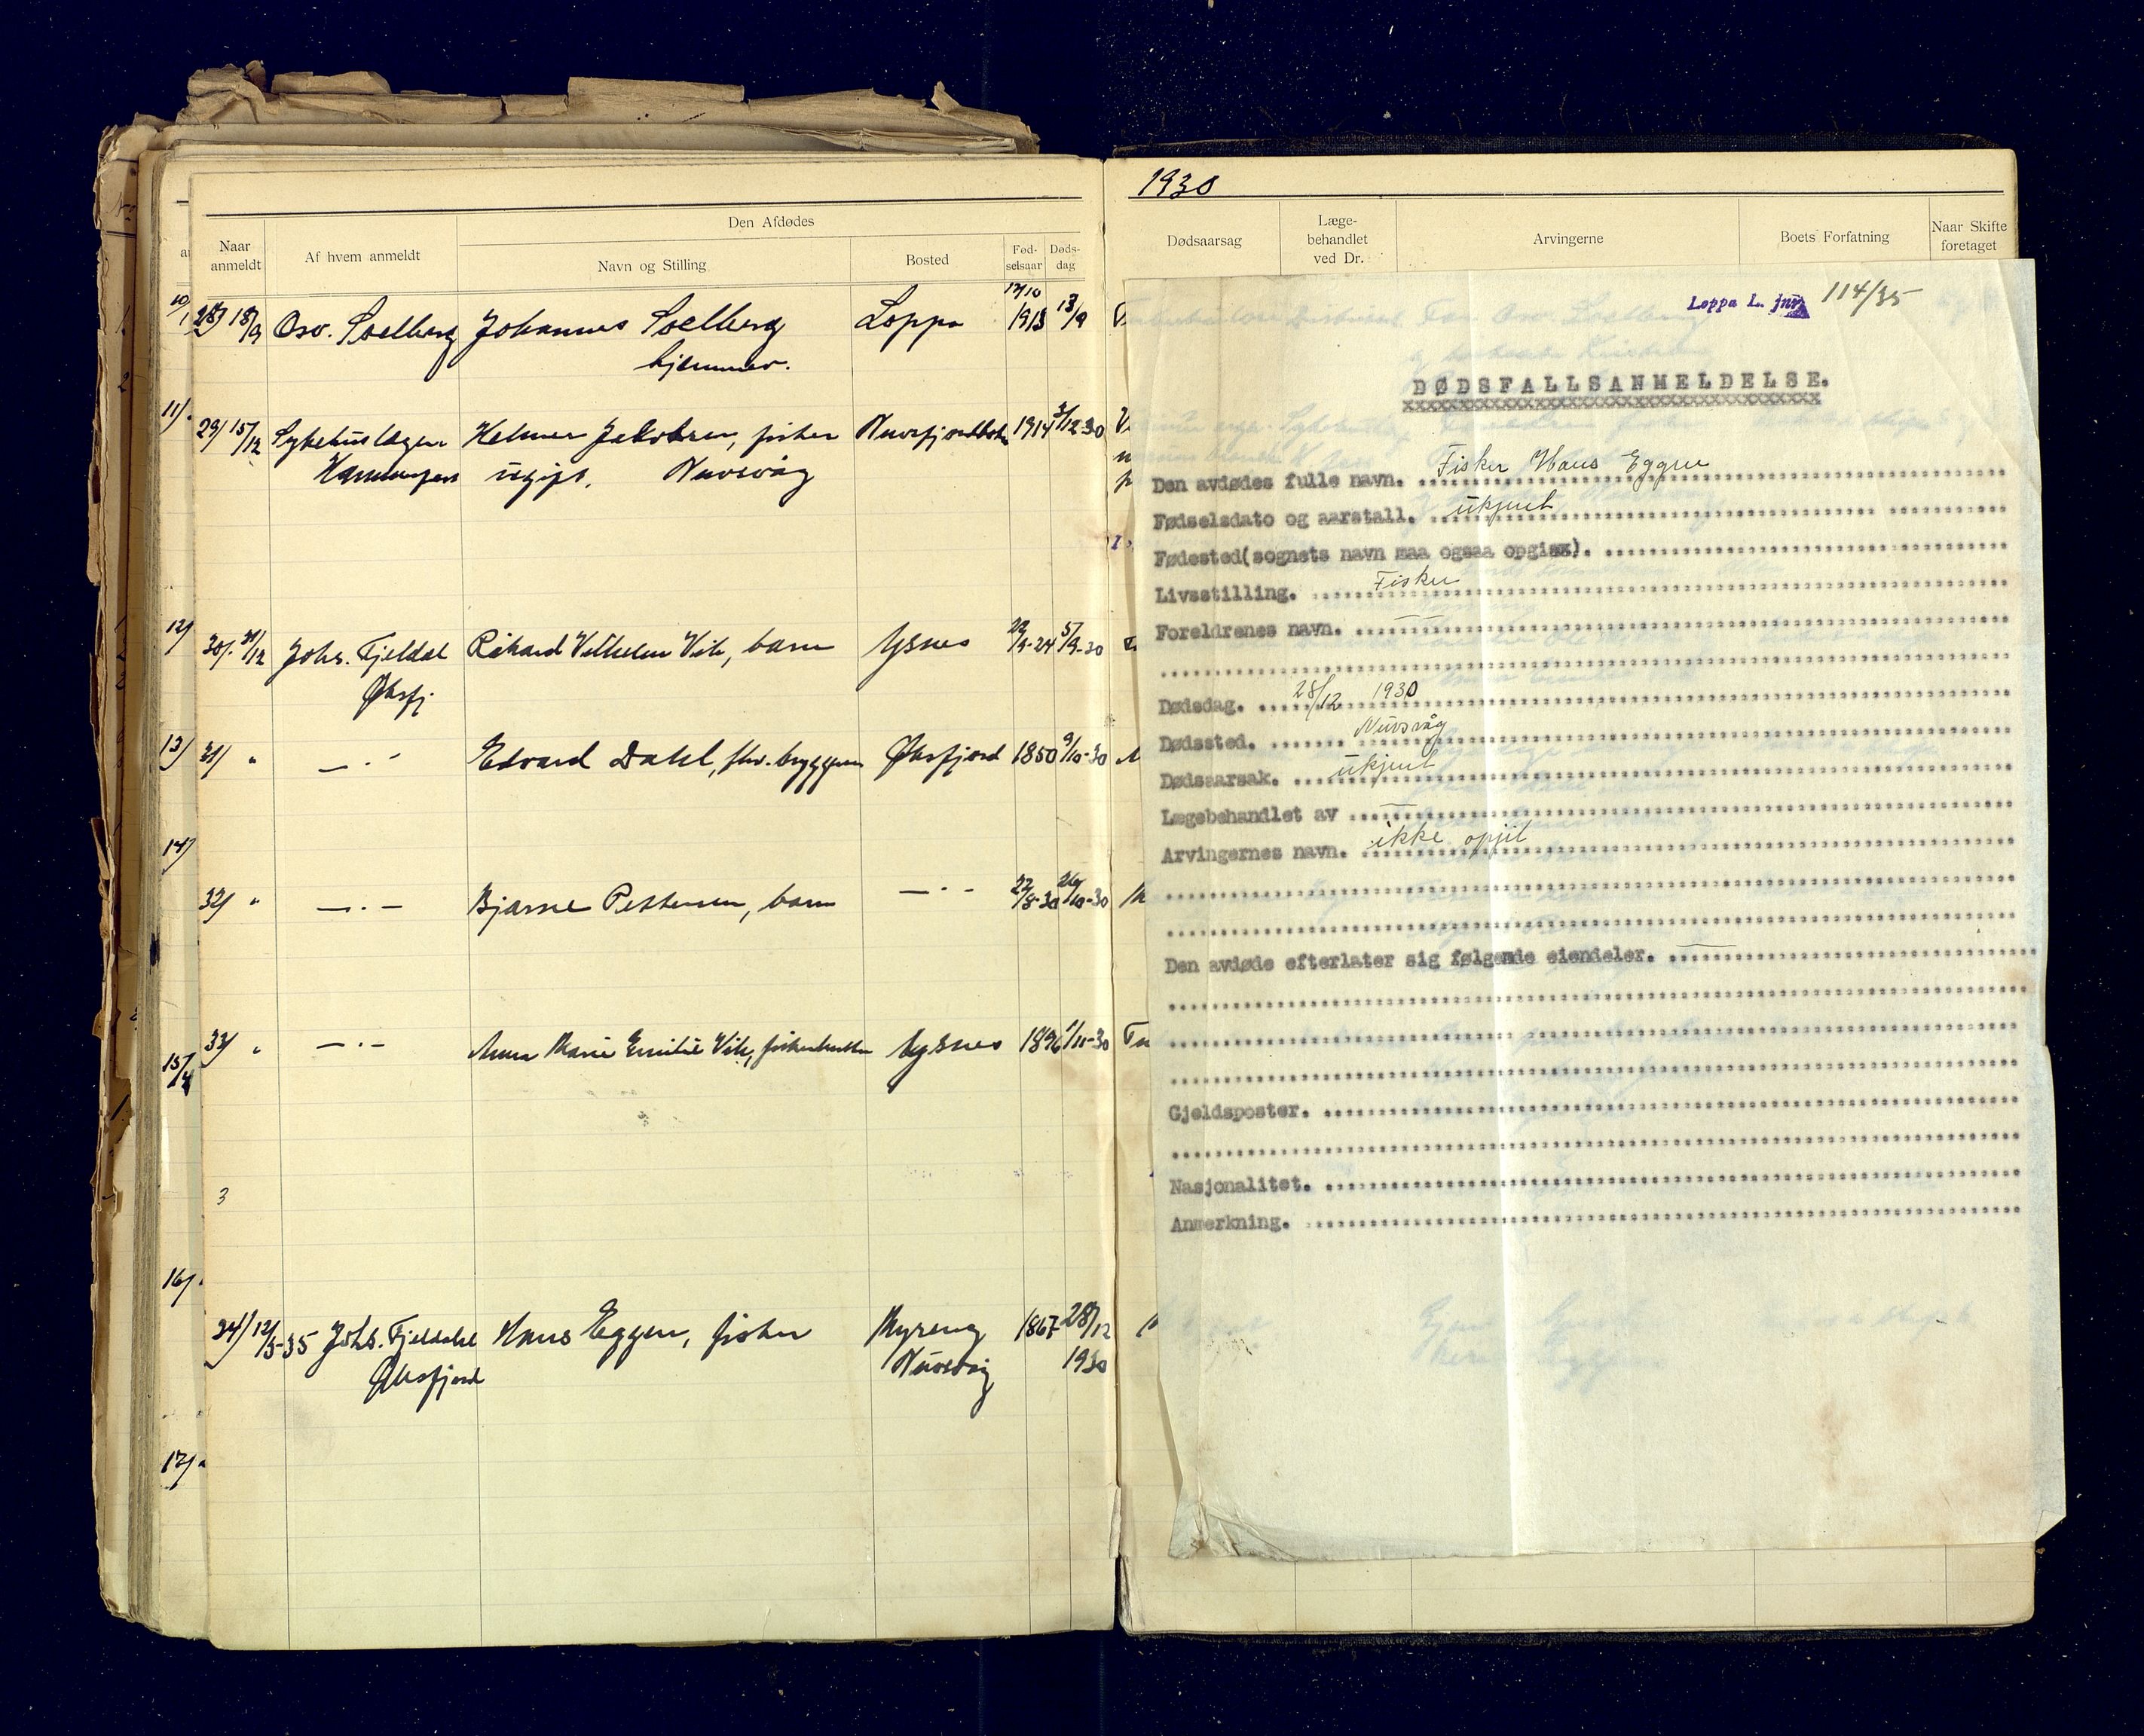 Den Afdødes
Naar anmeldt
Af hvem anmeldt
Navn og Stilling
Bosted
Fødselsaar
Dødsdag
10/
28/ 18/9 Osv. Soelberg Johannes Soelberg Loppa 17/10 1913 13/9
hjemmev.
11/
29/ 15/12 Sykehuslægen Helmer Jakobsen, fisker Nuvsfjordbotn 1914 3/12-30
Hammerfest ugift, Nuvsvåg
12/
30/ 31/12 Johs. Fjeldal Rikard Vilhelm Vik, barn Ysnes 5/9-30
Øksfj
13/
31/ " — · — Edvard Dahl, Øksfjord 1850 9/10-30
14/
32/ " — · — Bjarne Pettersen, barn — · — 22/8-30 26/10-30
33/ " — · — Anna Marie Emilie Vik, Ysnes 1896 1/11-30
15/
3
16/
34/ 12/3-35 Johs. Fjeldal Hans Eggen, fisker Myreng 1867 28/12
Øksfjord Nuvsvåg 1930
17/
1930
Dødsaarsag
Læge-behandlet ved Dr.
Arvingerne
Boets Forfatning
Naar Skifte foretaget
Loppa L. jnr. 114/35
DØDSFALLSANMELDELSE.
Den avdødes fulle navn. Fisker Hans Eggen
Fødselsdato og aarstall. ukjent
Fødested(sognets navn maa ogsaa opgies).
Livsstilling. Fisker
Foreldrenes navn. —
Dødsdag. 28/12 1930
Dødssted. Nuvsvåg
Dødsaarsak. ukjent
Lægebehandlet av —
Arvingernes navn. ikke opgit
Den avdøde efterlater sig følgende eiendeler. —
Gjeldsposter.
Nasjonalitet.
Anmerkning.